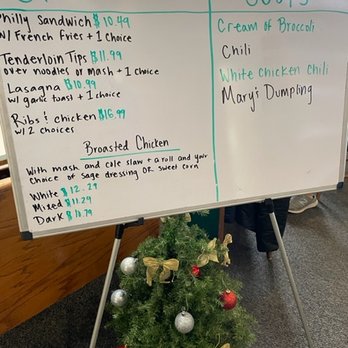 Philly Sandwich $10.49
w/ French Fries + 1 Choice
Tenderloin Tips $11.99
over noodles or mash + 1 choice
Lasagna $10.99
w/ garlic toast + 1 choice
Ribs & chicken $16.99
w/ 2 choices
Broasted Chicken
with mash and cole slaw + a roll and your
choice of sage dressing OR sweet corn
White $12.29
Mixed $11.29
Dark $10.79
Cream of Broccoli
Chili
White chicken Chili
Mary's Dumpling